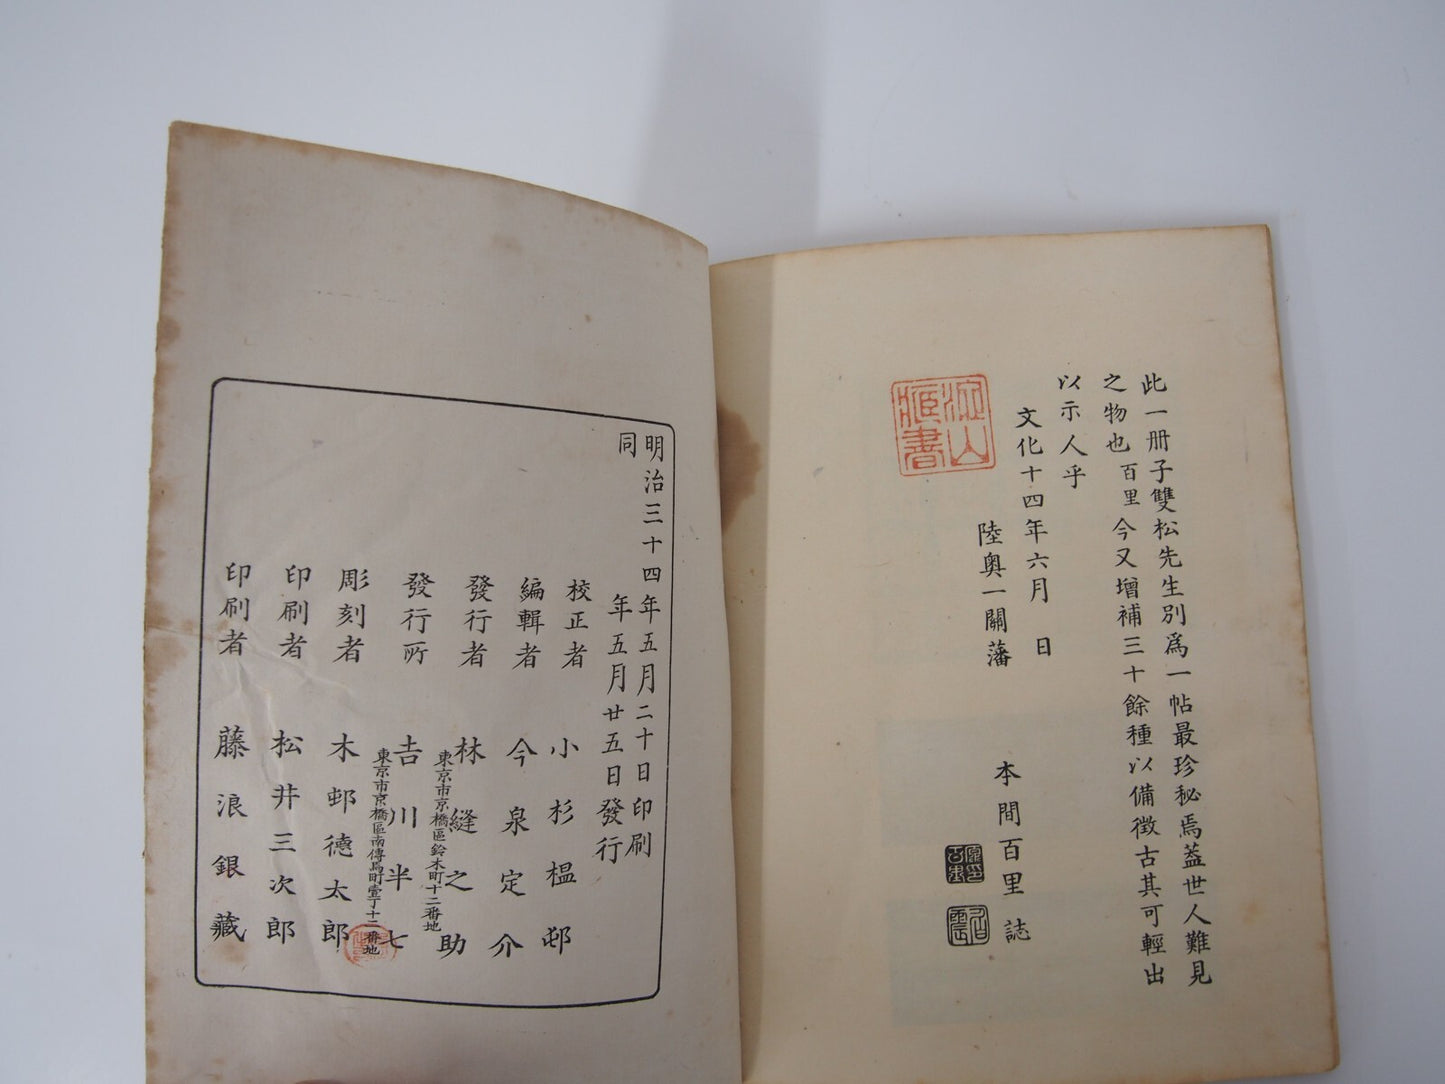 此一册子雙松先生別爲一帖最珍秘焉蓋世人難見
之物也百里今又増補三十餘種以備徴古其可輕出
以示人乎
文化十四年六月 日
陸奥一關藩 本間百里誌
明治三十四年五月二十日印刷
同 年五月廿五日發行
校正者 小杉榲邨
編輯者 今泉定介
發行者 林縫之助
東京市京橋區鈴木町十二番地
發行所 吉川半七
東京市京橋區南傳馬町壹丁十二番地
彫刻者 木邨徳太郎
印刷者 松井三次郎
印刷者 藤浪銀藏